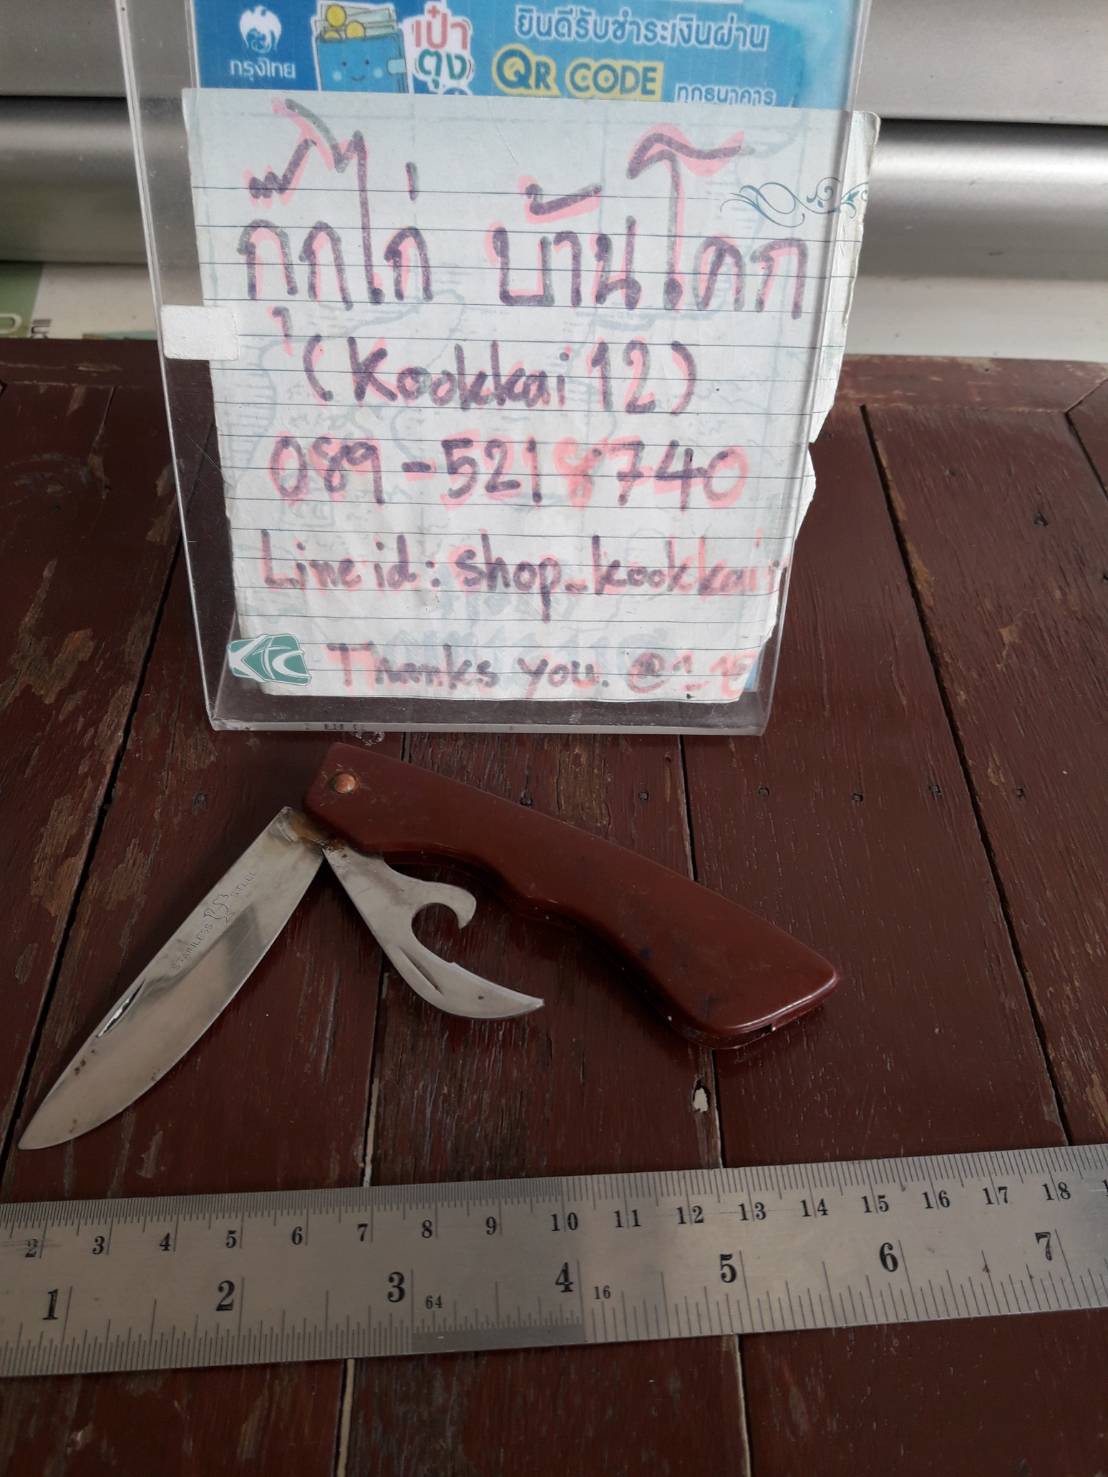 กรุงไทย
เป๋า
ตุง
ยินดีรับชำระเงินผ่าน
QR CODE
ทุกธนาคาร
กุ๊กไก่ บ้านโคก
(Kookkai 12)
089-5218740
Line id: shop_kookkai
Thanks you.
STAINLESS STEEL
2 3 4 5 6 7 8 9 10 11 12 13 14 15 16 17 18
1 2 3 64 4 16 5 6 7